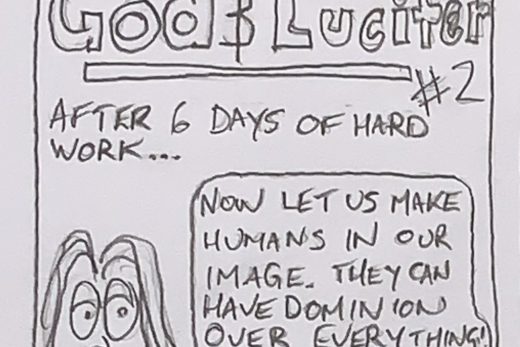 God & Lucifer
#2
AFTER 6 DAYS OF HARD
WORK...
NOW LET US MAKE
HUMANS IN OUR
IMAGE. THEY CAN
HAVE DOMINION
OVER EVERYTHING!